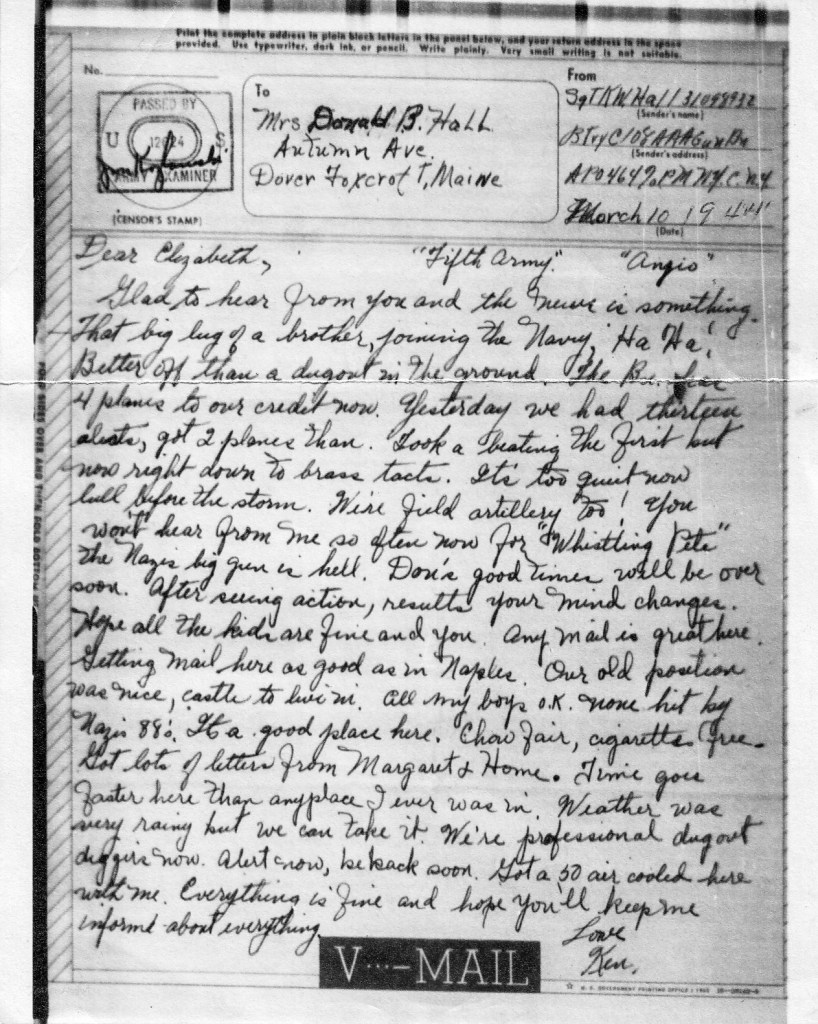 Print the complete address in plain block letters in the panel below, and your return address in the space
provided. Use typewriter, dark ink, or pencil. Write plainly. Very small writing is not suitable.
No.
PASSED BY
U S
12624
ARMY EXAMINER
(CENSOR'S STAMP)
To
Mrs Donald B. Hall
Autumn Ave.
Dover Foxcroft, Maine
From
Sgt K W Hall 31098932
(Sender's name)
BTryC 108 AAA Gun Bn
(Sender's address)
APO 464 % PM N.Y.C. N.Y
March 10 1944
(Date)
Dear Elizabeth, "Fifth Army" "Anzio"
Glad to hear from you and the news is something.
That big lug of a brother, joining the Navy, Ha Ha!
Better off than a dugout in the ground. The Bn.
4 planes to our credit now. Yesterday we had thirteen
alerts, got 2 planes than. Took a beating the first but
now right down to brass tacts. It's too quiet now
lull before the storm. We're field artillery too! You
won't hear from me so often now for "Whistling Pete"
the Nazis big gun is hell. Don's good times will be over
soon. After seeing action, results your mind changes.
Hope all the kids are fine and you. Any mail is great here.
Getting mail here as good as in Naples. Our old position
was nice, castle to live in. All my boys o.K. none hit by
Nazis 88's. It a good place here. Chow fair, cigarettes free.
Got lots of letters from Margaret & Home. Time goes
faster here than anyplace I ever was in. Weather was
very rainy but we can take it. We're professional dugout
diggers now. Alert now, be back soon. Got a 50 air cooled here
with me. Everything is fine and hope you'll keep me
informd about everything.
Love
Ken.
V···–MAIL
U. S. GOVERNMENT PRINTING OFFICE